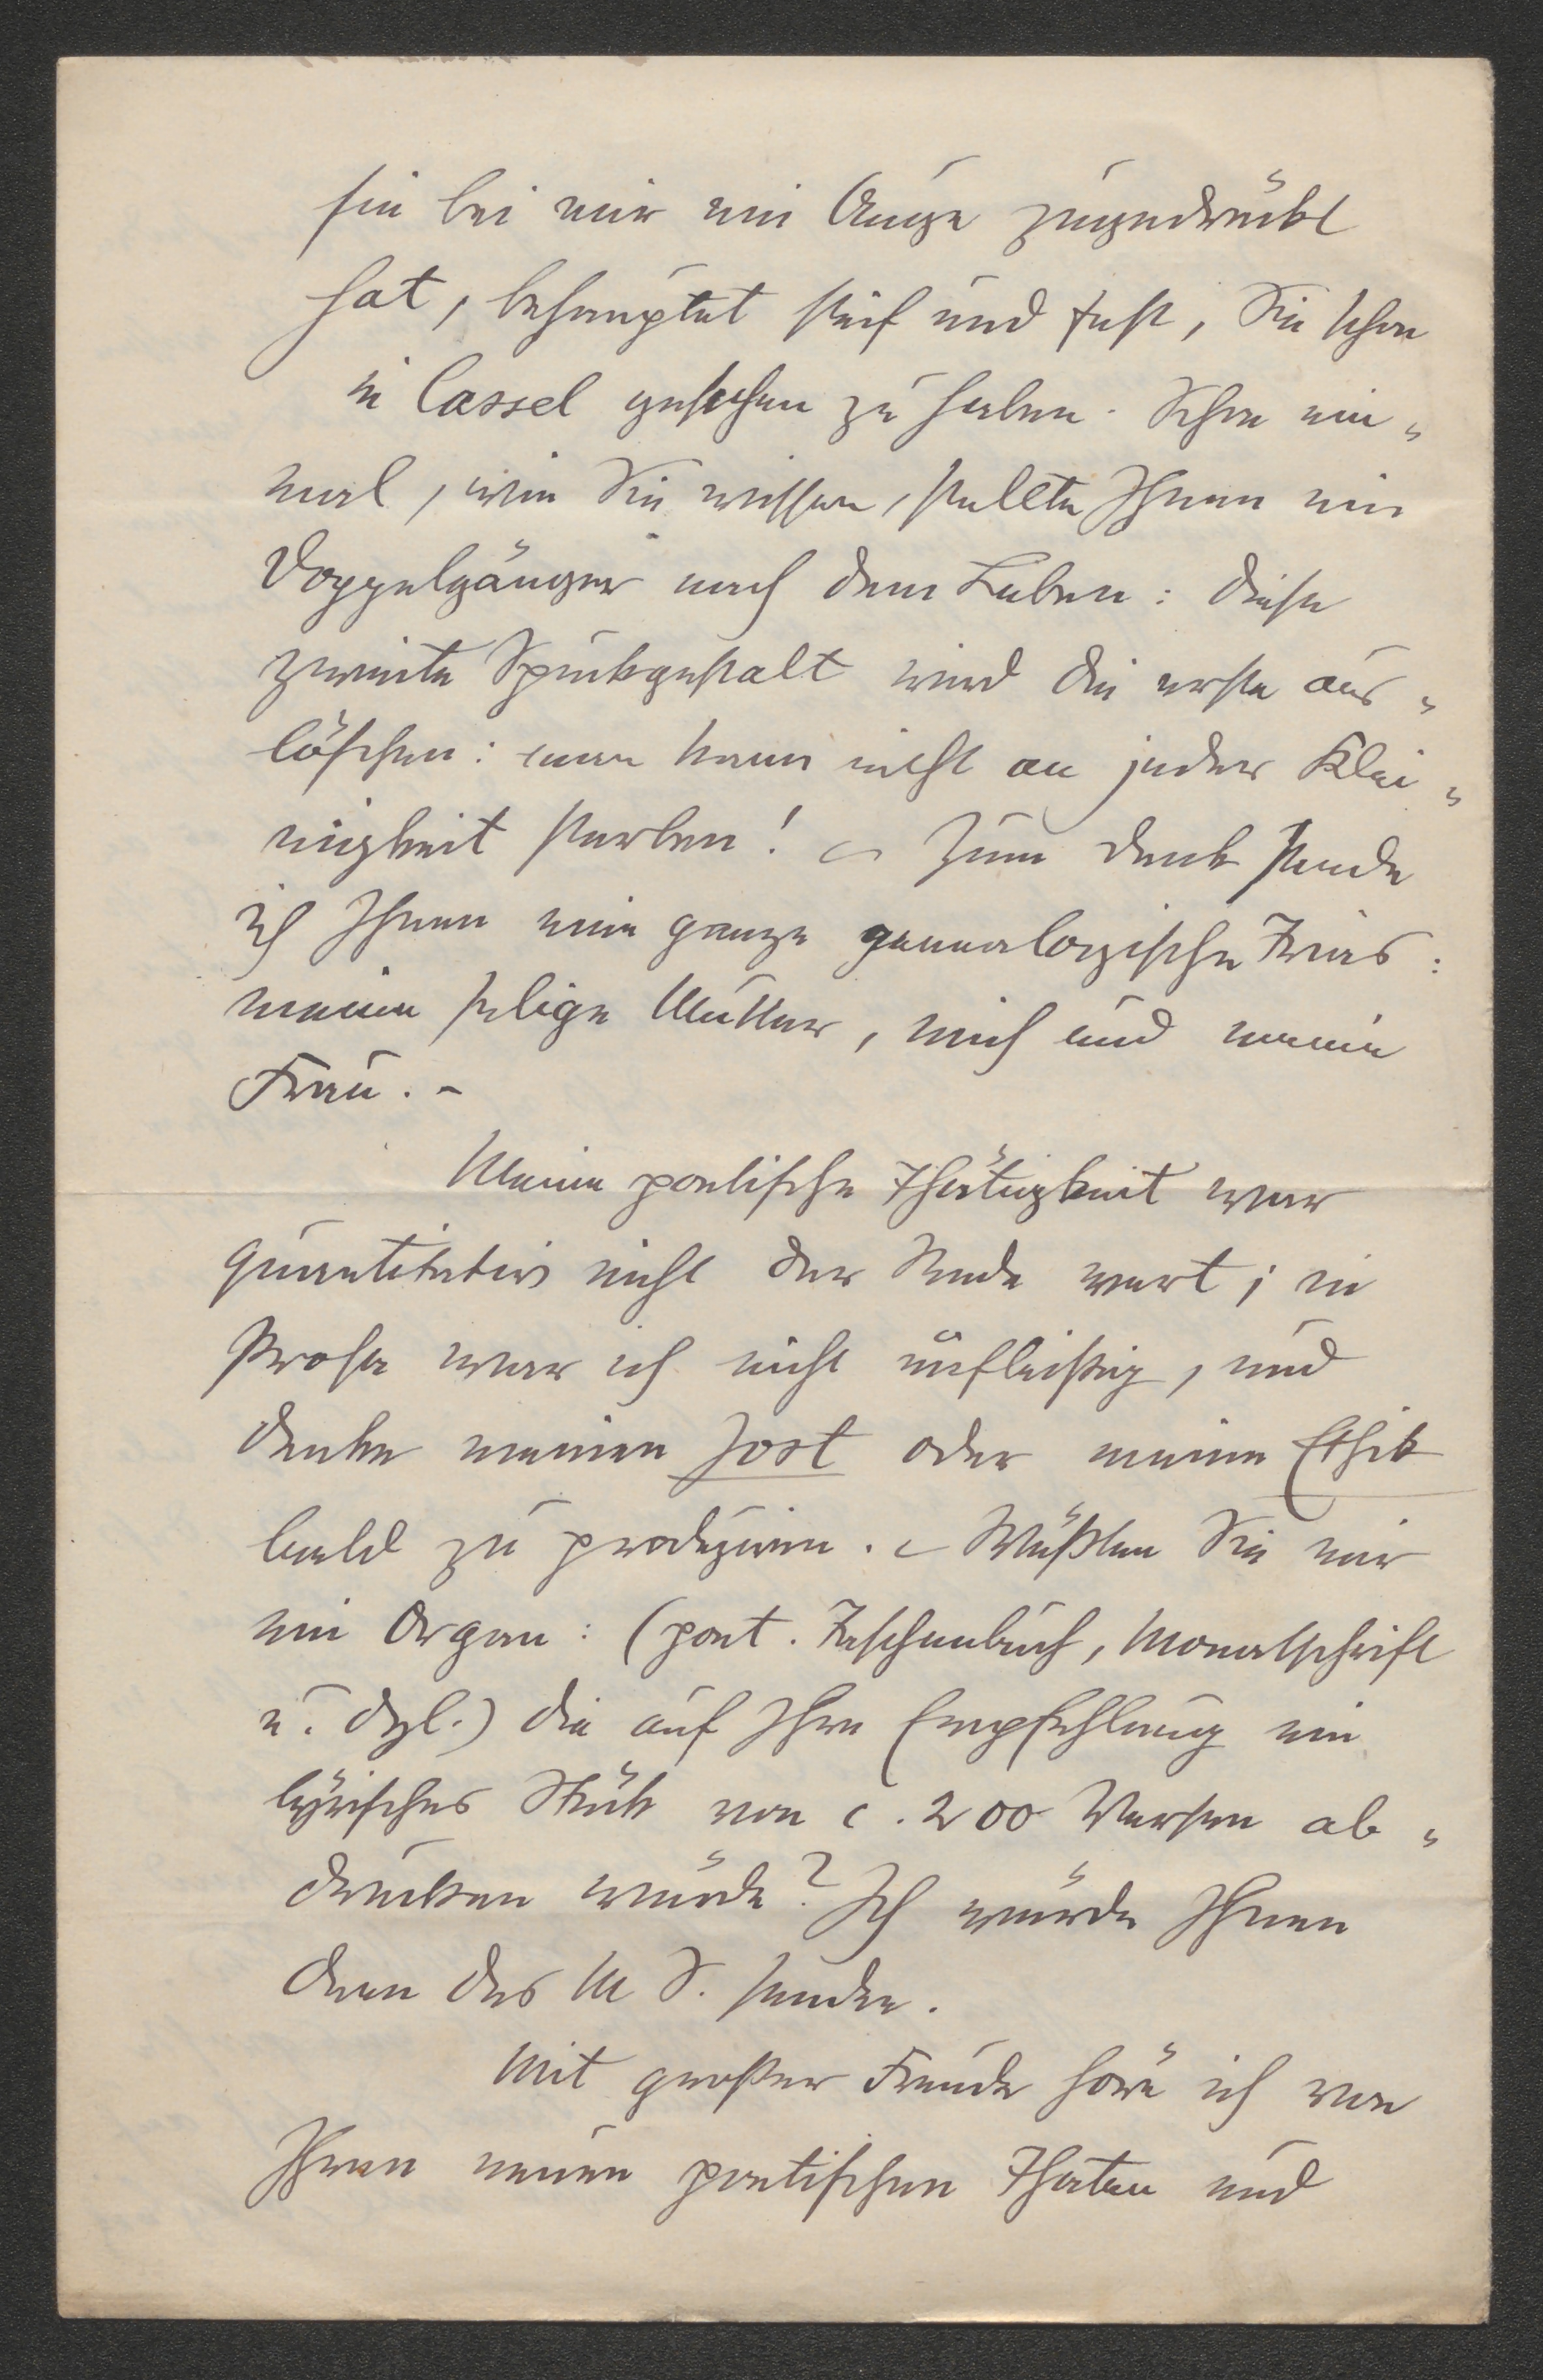 sie bei mir ein Auge zugedrückt
hat, behauptet steif und fest, Sie schon
in Cassel gesehen zu haben. Schon ein„
mal, wie Sie wissen, stellte Ihnen ein
Doppelgänger nach dem Leben: diese
zweite Spukgestalt wird die erste aus„
löschen: man kann nicht an jeder Klei„
nigkeit sterben! – Zum Dank sende
ich Ihnen eine ganze genealogische Trias:
meine selige Mutter, mich und meine
Frau. –
Meine poetische Thätigkeit war
quantitativ nicht der Rede wert; in
Prosa war ich nicht unfleißig, und
denke meinen Jost oder meine Ethik
bald zu prodzuiren. – Wüßten Sie mir
ein Organ: (poet. Taschenbuch, Monatschrift
u. dgl.) die auf Ihre Empfehlung ein
lyrisches Stük von c. 200 Versen ab„
drucken würde? Ich würde Ihnen
dann das M S. senden.
Mit großer Freude höre ich von
Ihren neuen poetischen Thaten und